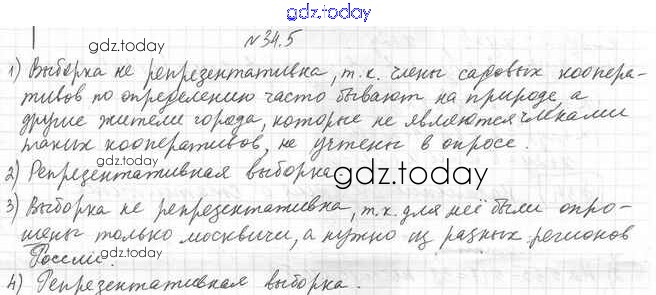 gdz.today
№34.5
gdz.today
1) Выборка не репрезентативна, т.к. члены садовых коопера-
тивов по определению часто бывают на природе, а
другие жители города, которые не являются членами
таких кооперативов, не учтены в опросе.
gdz.today
2) Репрезентативная выборка
gdz.today
3) Выборка не репрезентативна, т.к. для неё были опро-
шены только москвичи, а нужно из разных регионов
России.
gdz.today
4) Репрезентативная выборка.